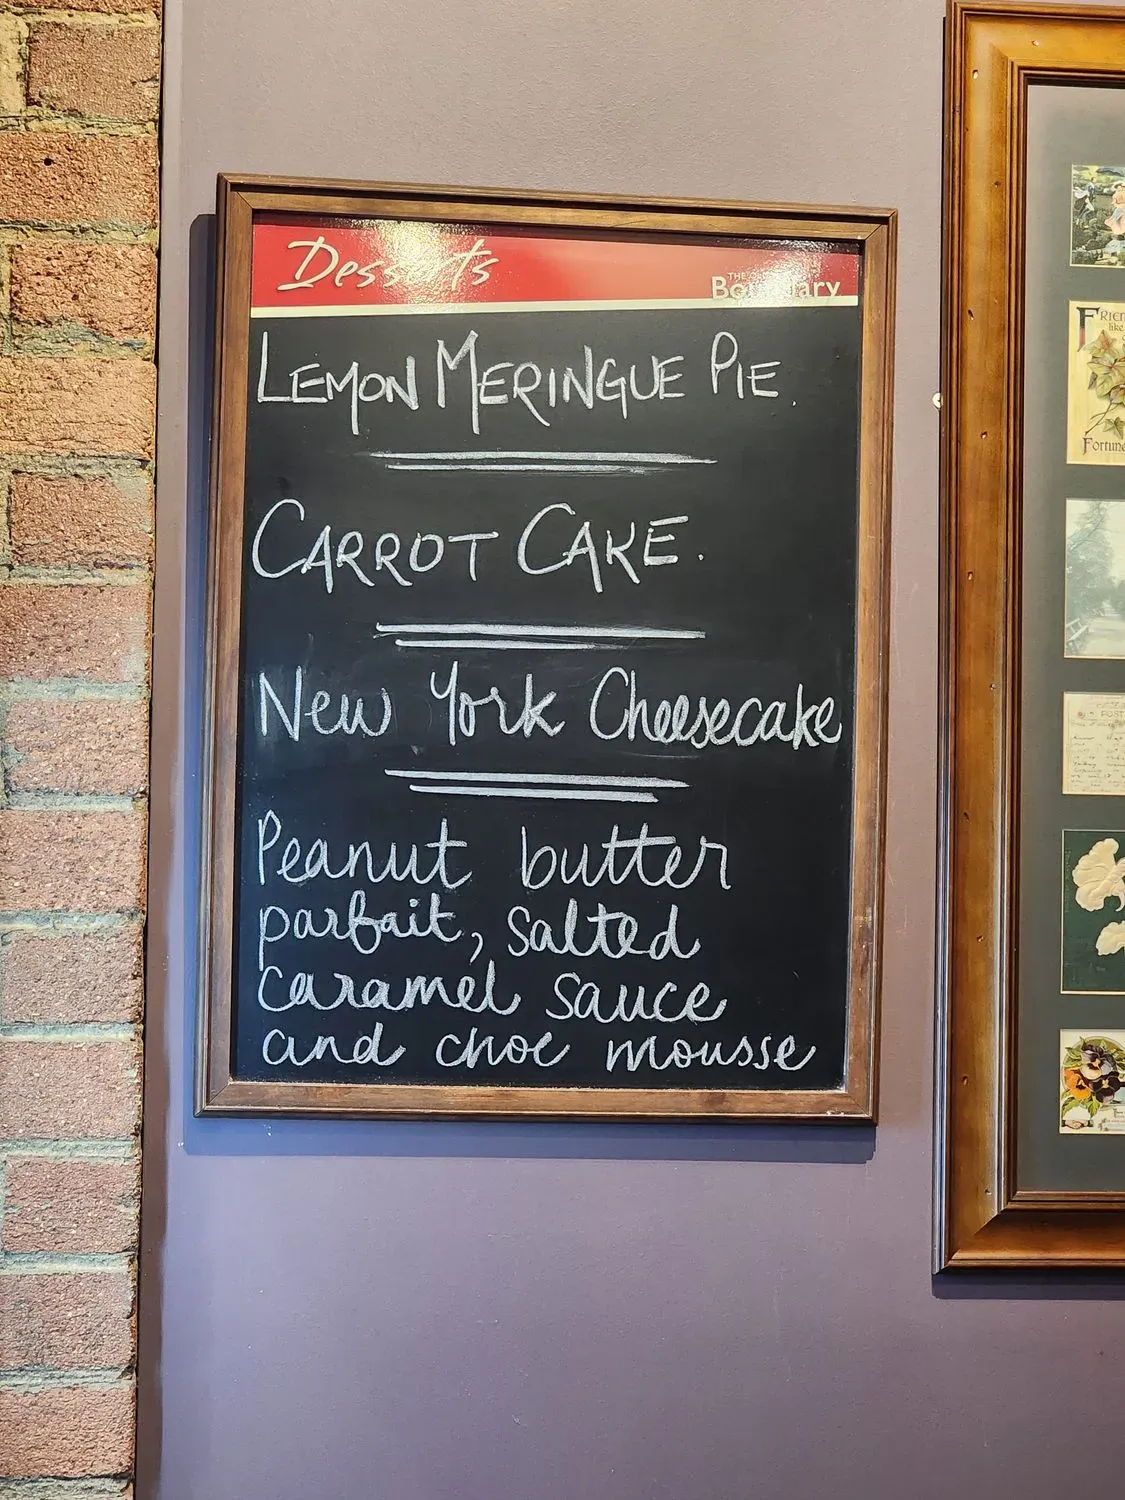 Desserts
Boundary
LEMON MERINGUE PIE.
CARROT CAKE.
New York Cheesecake
Peanut butter
parfait, salted
caramel sauce
and choc mousse
FRIEN
like
Fortune
POST